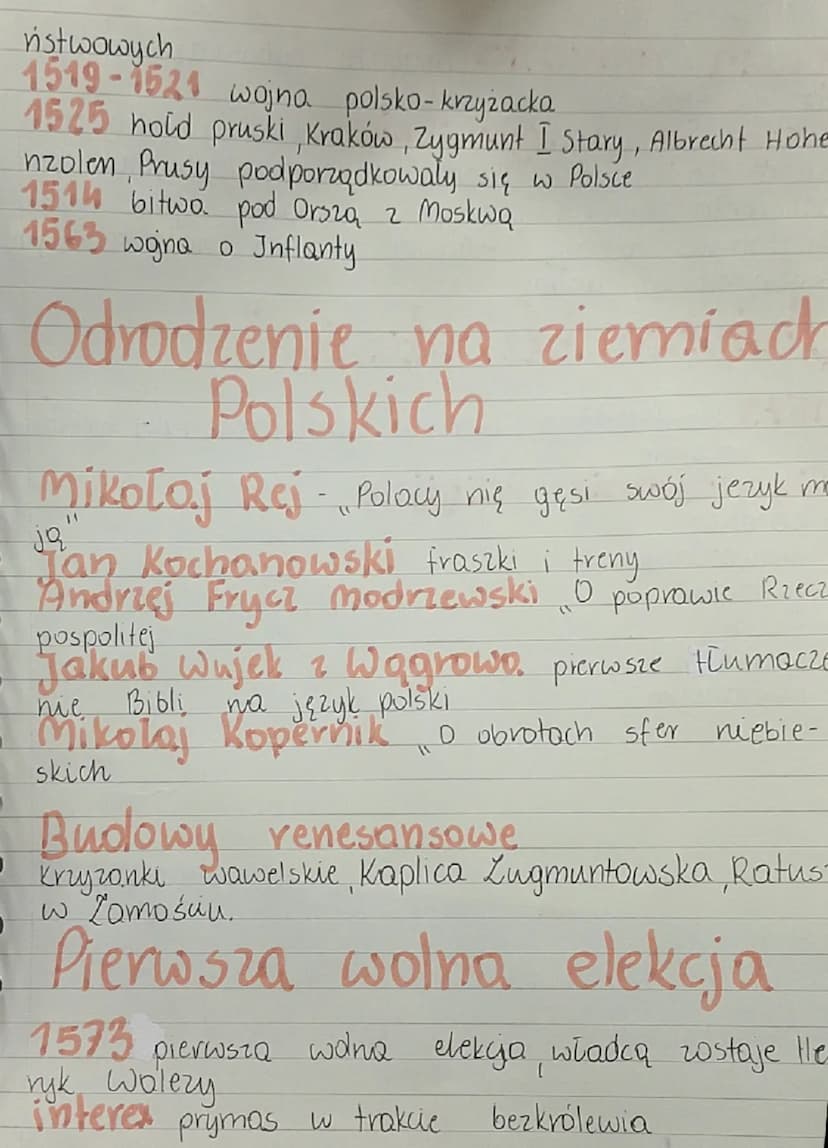 ństwowych
1519-1521 wojna polsko-krzyżacka
1525 hołd pruski, Kraków, Zygmunt I Stary, Albrecht Hohe
nzolen, Prusy podporządkowały się w Polsce
1514 bitwa pod Orszą z Moskwą
1563 wojna o Inflanty
Odrodzenie na ziemiach
Polskich
Mikołaj Rej - „Polacy nię gęsi swój jezyk ma
ją"
Jan Kochanowski fraszki i treny
Andrzej Frycz Modrzewski „O poprawie Rzecz
pospolitej
Jakub Wujek z Wągrowa pierwsze tłumacze
nie Bibli na język polski
Mikołaj Kopernik „O obrotach sfer niebie-
skich
Budowy renesansowe
Krzyżanki wawelskie, Kaplica Zugmuntowska, Ratusz
w Zamościu.
Pierwsza wolna elekcja
1573 pierwsza wolna elekcja, władcą zostaje He
ryk Walezy
interex prymas w trakcie bezkrólewia